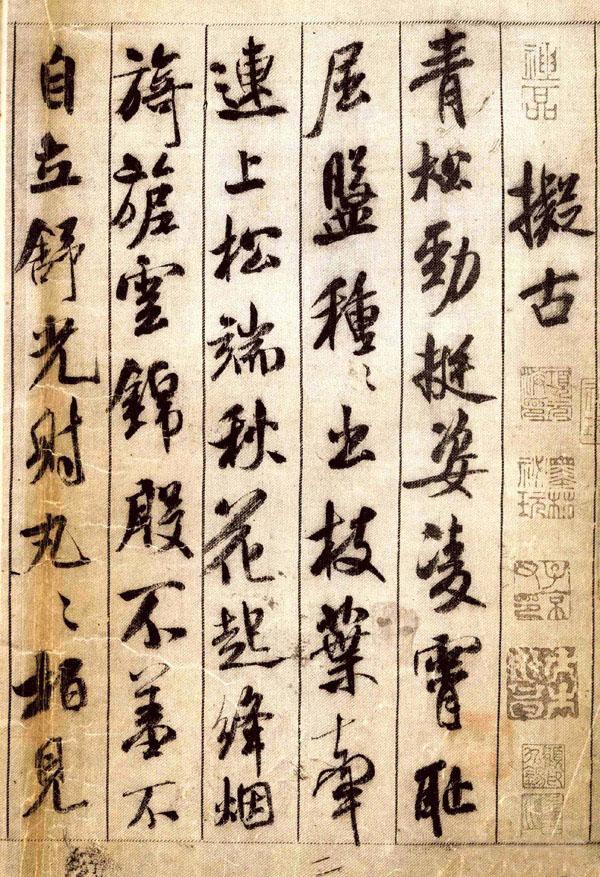 神品
擬古
青松勁挺姿凌霄耻
屈盤種〻出枝葉牽
連上松端秋花起絳烟
旖旎雲錦殷不羞不
自立舒光射丸〻柏見
二